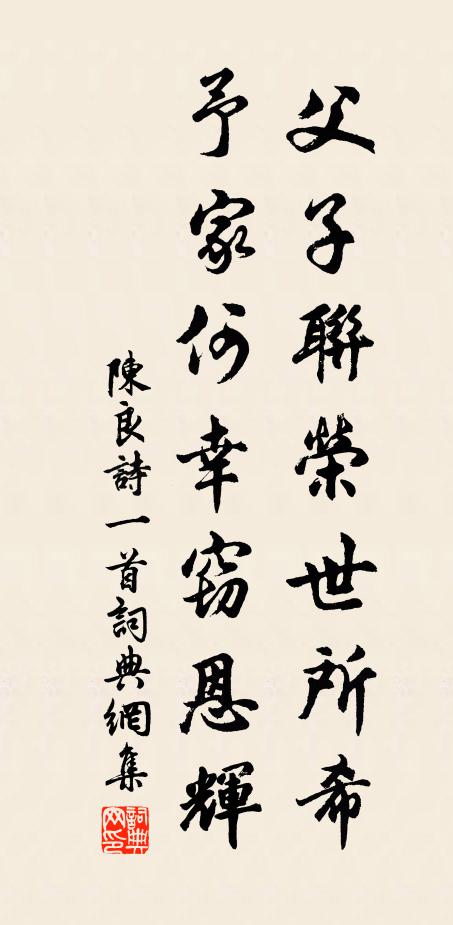 父子聯榮世所希
予家何幸竊恩輝
陳良詩一首詞典網集
詞典网印